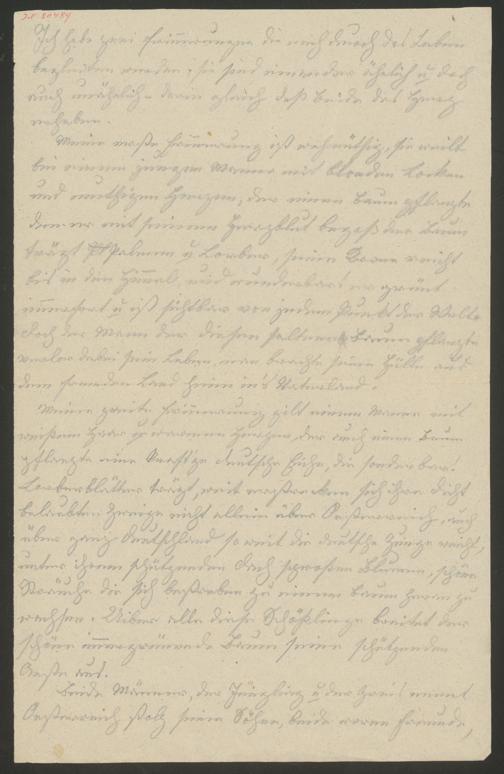 I.N. 80484
Ich habe zwei Erinnerungen die mich durch das Leben
begleiten werden, sie sind einander ähnlich u doch
auch unähnlich – darin gleich daß beide das Herz
erheben.
Meine erste Erinnerung ist wehmüthig, sie weilt
bei einem jungen Manne mit blonden Locken
und muthigem Herzen, der einen Baum pflanzte
den er mit seinem Herzblut begoß der Baum
trägt Palmen u Lorber, seine Krone reicht
bis in den Himmel, und wunderbar! er grünt
immerfort u ist sichtbar von jedem Punkt der Welt
doch der Mann der diesen seltenen Baum pflanzte
verlor dabei sein Leben, man brachte seine Hülle aus
dem fremden Land heim in's Vaterland.
Meine zweite Erinnerung gilt einem Manne mit
weißem Haar u warmem Herzen, der auch einen Baum
pflanzte eine deutsche Eiche, die sonderbar!
Lorberblätter trägt, weit erstrecken sich ihre dicht
belaubten Zweige nicht allein über Oesterreich, auch
über ganz Deutschland so weit die deutsche Zunge reicht,
unter ihrem schützenden Dach sprossen Blumen, schöne
die sich bestreben zu einem Baum heran zu
wachsen. Ueber alle diese Schößlinge breitet der
schöne immergrünende Baum seine schützenden
Aeste aus.
Beide Männer, der Jüngling u der Greis nennt
Oesterreich stolz seine Söhne, beide waren Freunde,